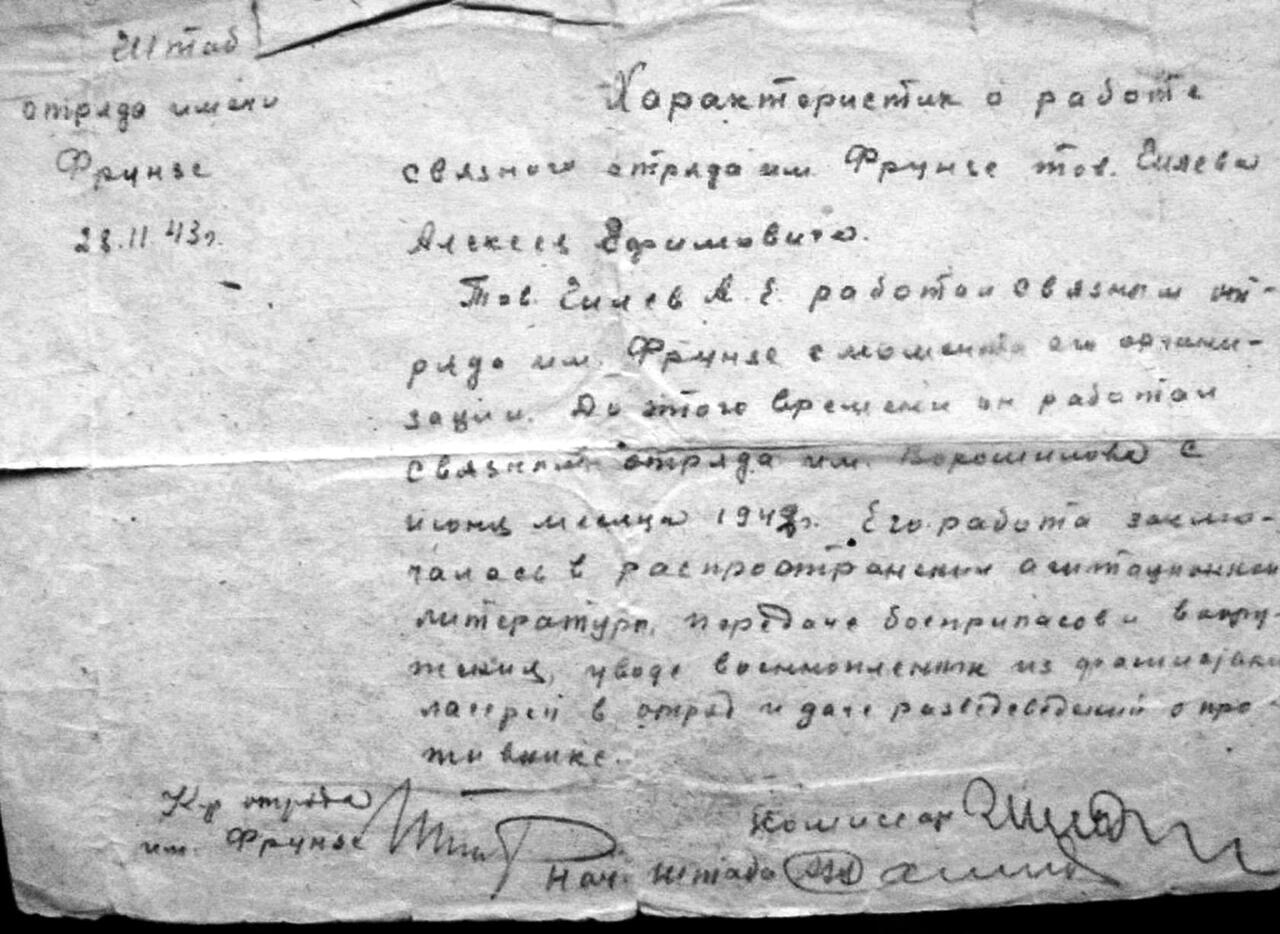 Штаб
отряда имени
Фрунзе
23.11.43г.
Характеристик о работе
связного отряда им. Фрунзе тов.
Алексея Ефимовича.
Тов. А. Е. работал связным от-
ряда им. Фрунзе с момента его органи-
зации. До этого времени он работал
связным отряда им. Ворошилова с
месяца 1942г. Его работа заклю-
чалась в распространении агитационной
литературы, передаче боеприпасов и воору-
жения, уводе из
лагерей в отряд и даче разведсведений о про-
тивнике.
К-р отряда
им. Фрунзе
Комиссар
Нач. штаба